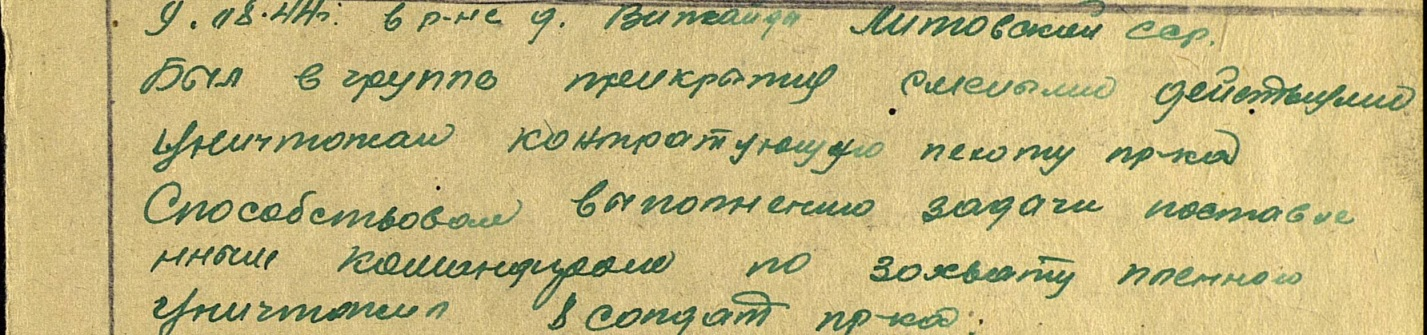 9.08.44г. в р-не д. Виткайди Литовской сср.
Был в группе прикрытия смелыми действиями
уничтожал контратующую пехоту пр-ка
Способствовал выполнению задачи поставле
нным командиром по захвату пленного
Уничтожил 8 солдат пр-ка.